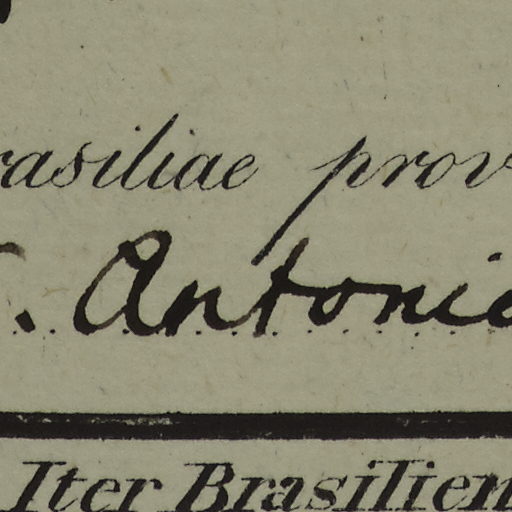 rasiliae prov
. Antonio
Iter Brasilien